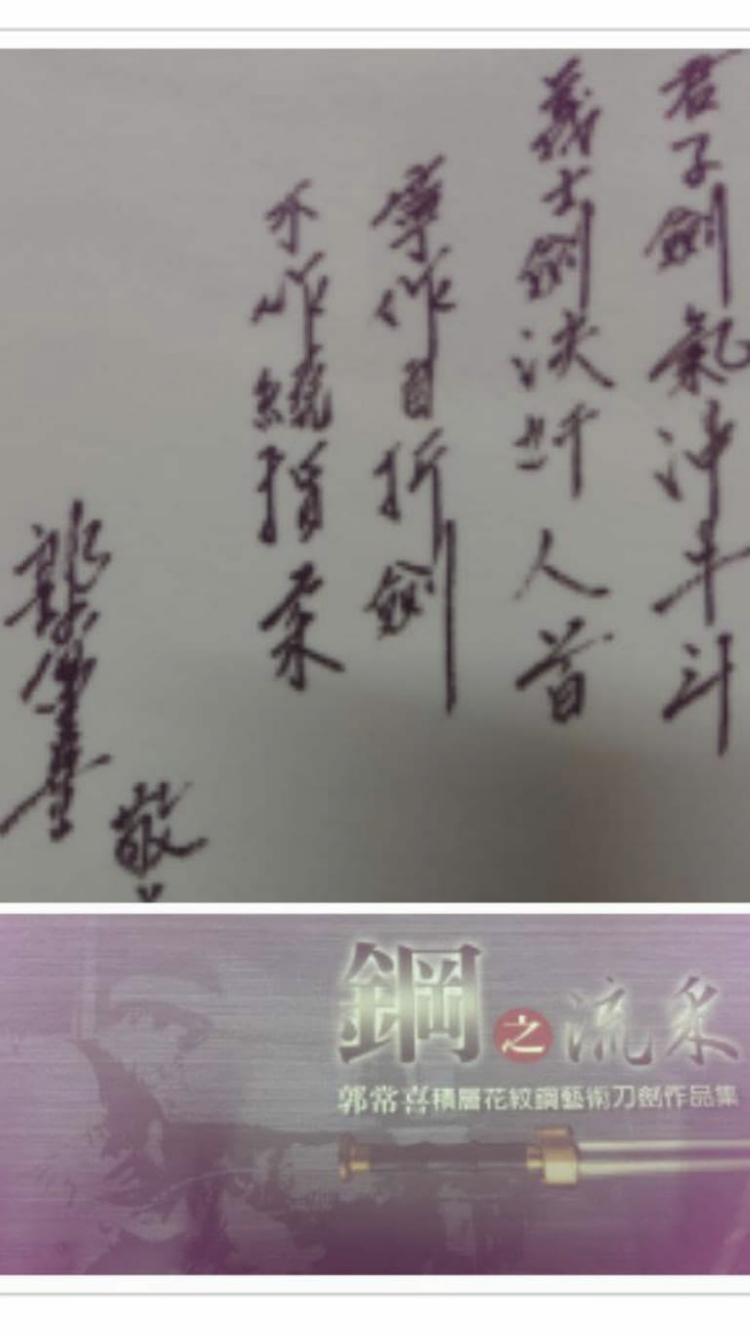 君子劍氣沖牛斗
義士劍決奸人首
寧作百折劍
不作繞指柔
敬
鋼之流采
郭常喜積層花紋鋼藝術刀劍作品集